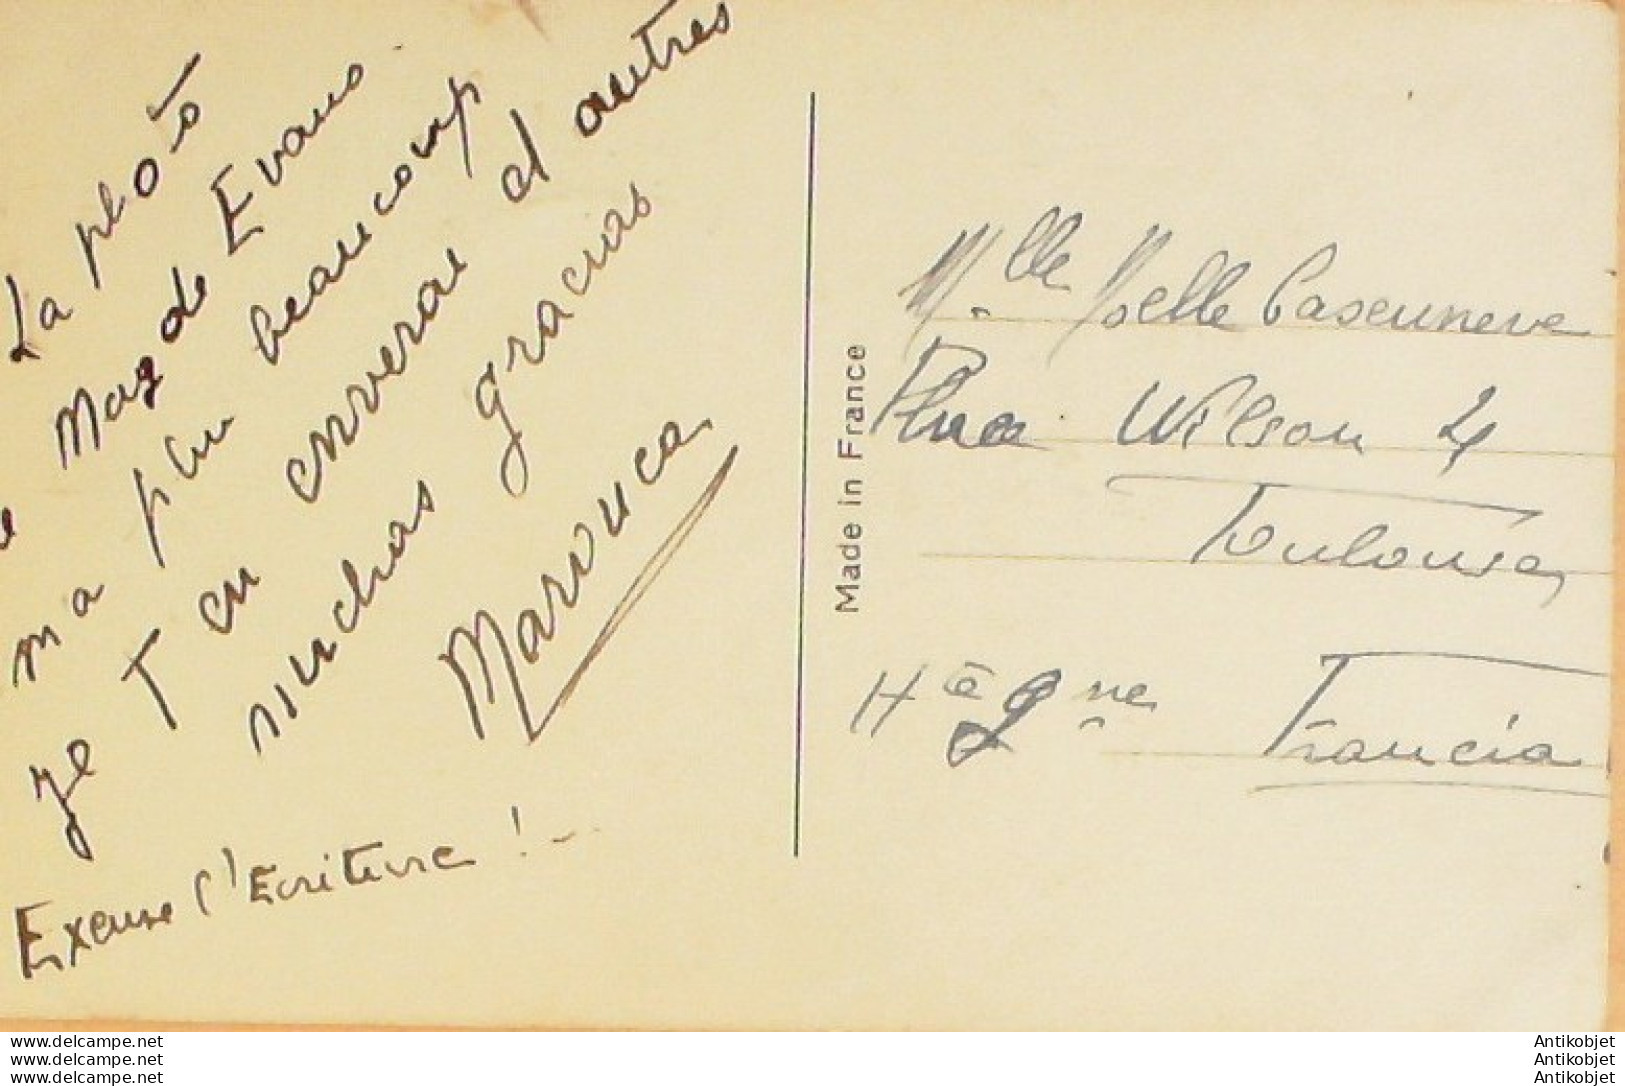 La photo
de Mag de Evans
m'a plu beaucoup
je T en enverai d autres
muchas gracias
Marouca
Excuse l'Ecriture !
Made in France
Mlle Noelle Caseuneve
Place Wilson 4
Toulouse
Hte Gne Francia
www.delcampe.net
www.delcampe.net
www.delcampe.net
Antikobjet
Antikobjet
Antikobjet